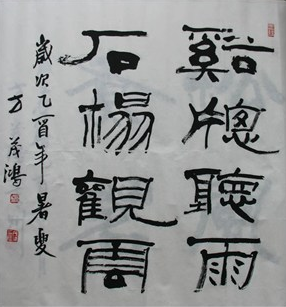 谿牕聽雨
石榻觀雲
歲次乙酉年暑夏
方茂鴻